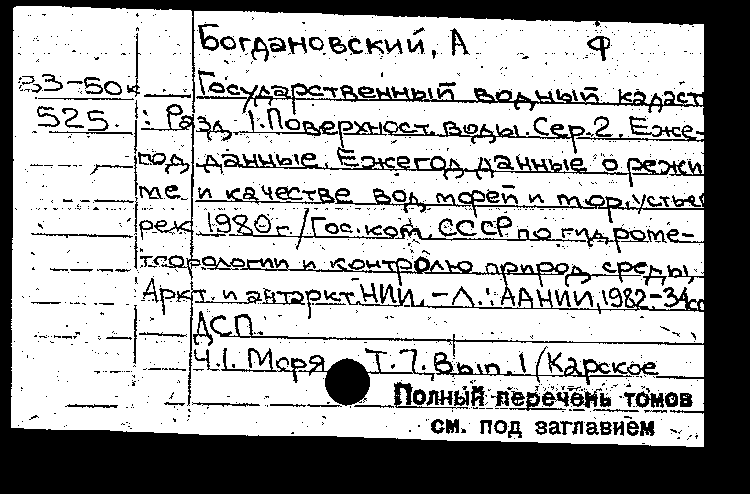 Богдановский, А Ф
83-50к Государственный водный кадаст
525. : Разд. 1. Поверхност. воды. Сер. 2. Еже-
год. данные. Ежегод. данные о режи
ме и качестве вод морей и мор. устьев
рек 1980 г. / Гос. ком. СССР по гидроме-
теорологии и контролю природ. среды,
Аркт. и антаркт. НИИ. - Л. : ААНИИ, 1982- 34 см
ДСП.
Ч.1. Моря Т. 7. Вып. 1 (Карское
Полный перечень томов
см. под заглавием